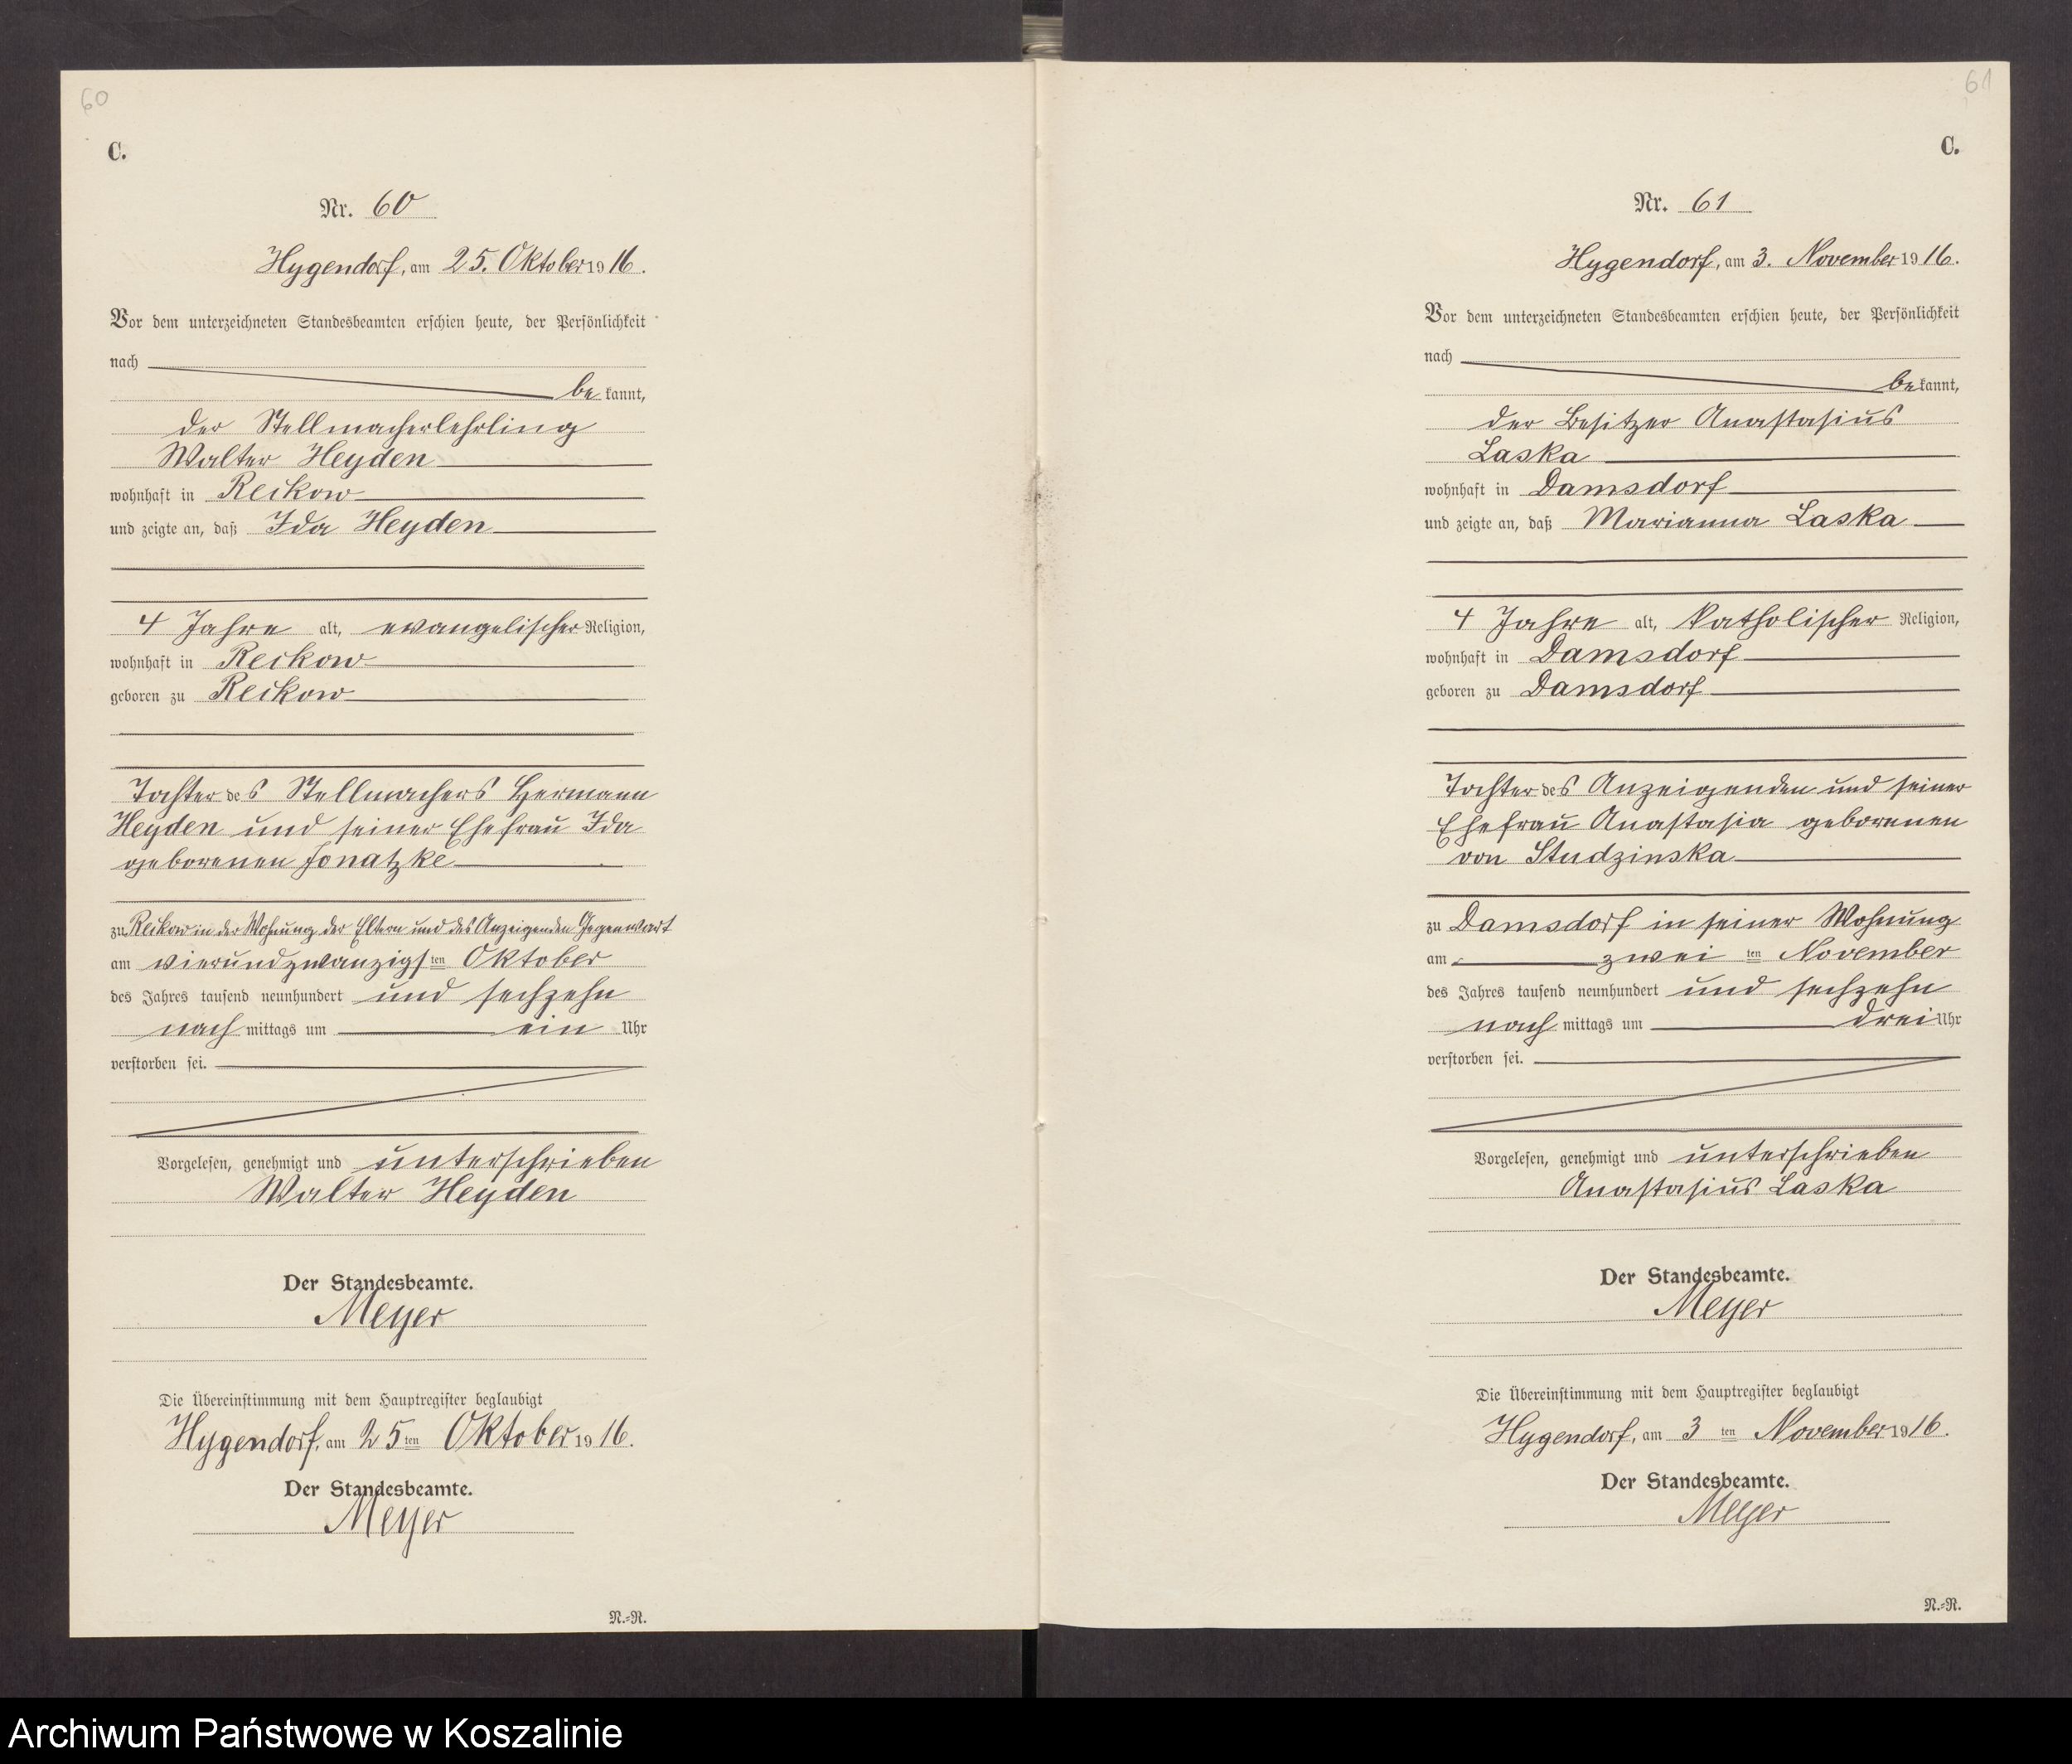 60
C.
Nr. 60
Hygendorf, am 25. Oktober 1916.
Vor dem unterzeichneten Standesbeamten erschien heute, der Persönlichkeit
nach
bekannt,
der Stellmacherlehrling
Walter Heyden
wohnhaft in Reckow
und zeigte an, daß Ida Heyden
4 Jahre alt, evangelischer Religion,
wohnhaft in Reckow
geboren zu Reckow
Tochter des Stellmachers Hermann
Heyden und seiner Ehefrau Ida
geborenen Jonatzke
zu Reckow in der Wohnung der Eltern und des Anzeigenden Gegenwart
am vierundzwanzigsten Oktober
des Jahres tausend neunhundert und sechzehn
nachmittags um ein Uhr
verstorben sei.
Vorgelesen, genehmigt und unterschrieben
Walter Heyden
Der Standesbeamte.
Meyer
Die Übereinstimmung mit dem Hauptregister beglaubigt
Hygendorf, am 25ten Oktober 1916.
Der Standesbeamte.
Meyer
N.-R.
61
C.
Nr. 61
Hygendorf, am 3. November 1916.
Vor dem unterzeichneten Standesbeamten erschien heute, der Persönlichkeit
nach
bekannt,
der Besitzer Anastasius
Laska
wohnhaft in Damsdorf
und zeigte an, daß Marianna Laska
4 Jahre alt, katholischer Religion,
wohnhaft in Damsdorf
geboren zu Damsdorf
Tochter des Anzeigenden und seiner
Ehefrau Anastasia geborenen
von Studzinska
zu Damsdorf in seiner Wohnung
am zweiten November
des Jahres tausend neunhundert und sechzehn
nachmittags um drei Uhr
verstorben sei.
Vorgelesen, genehmigt und unterschrieben
Anastasius Laska
Der Standesbeamte.
Meyer
Die Übereinstimmung mit dem Hauptregister beglaubigt
Hygendorf, am 3ten November 1916.
Der Standesbeamte.
Meyer
N.-R.
Archiwum Państwowe w Koszalinie